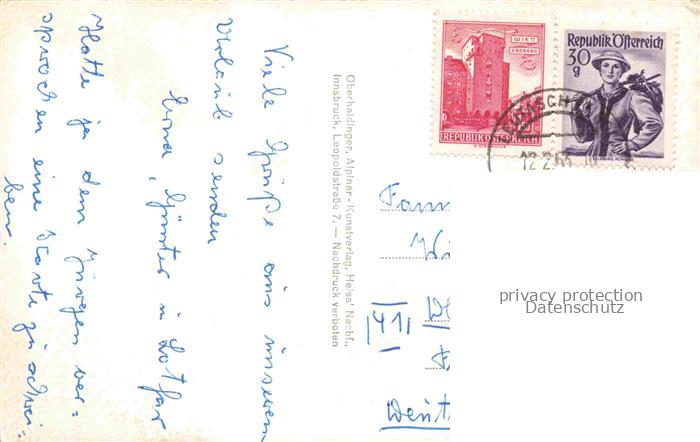 Viele Grüße aus unserem
Urlaub senden
Erna, Günter u. Lothar
Hatte ja dem Jürgen ver=
sprochen eine Karte zu schrei=
ben.
Oberhaidinger, Alpiner-Kunstverlag, Heiss' Nachf.,
Innsbruck, Leopoldstraße 7. — Nachdruck verboten
WIEN
ERDBERG
REPUBLIK ÖSTERREICH
Republik Österreich
30
g
12.2.63
Fam
Wi
41
Deut
privacy protection
Datenschutz